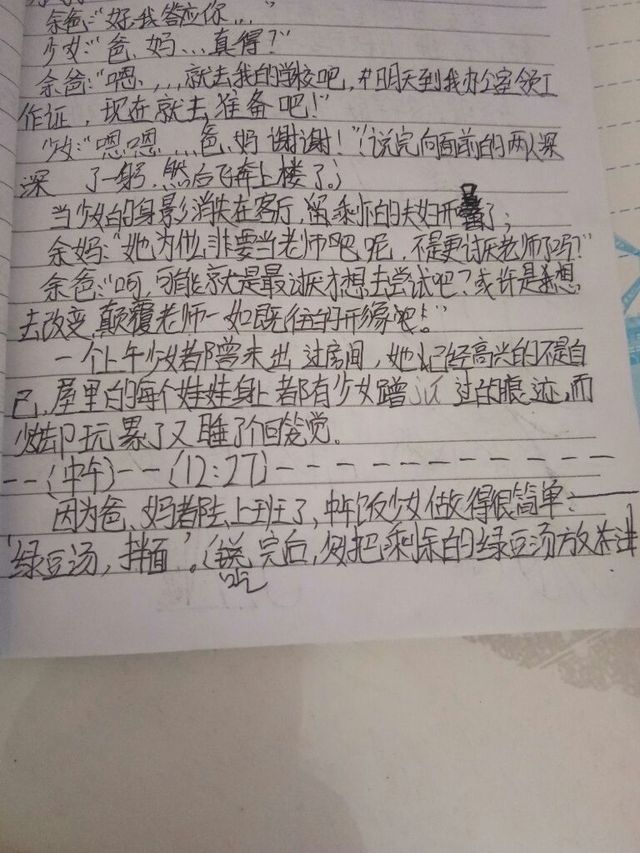 余爸:“好,我答应你...”
少女:“爸、妈...真得?”
余爸:“嗯、...就去我的学校吧,明天到我办公室领工
作证,现在就去准备吧!”
少女:“嗯嗯...爸、妈谢谢!”(说完向面前的两人深
深 了一躬,然后飞奔上楼了。)
当少女的身影消失在客厅,留剩下的夫妇开 了;
余妈:“她为什么非要当老师吧呢,不是更讨厌老师了吗?”
余爸:“呵,可能就是最讨厌才想去尝试吧?或许是想
去改变,颠覆老师一如既往的形象吧!”
一个上午少女都曾未出过房间,她已经高兴的不是自
已,屋里的每个娃娃身上都有少女蹭 过的痕迹,而
少女却玩累了又睡了个回笼觉。
--(中午)--(12:27)-------------
因为爸、妈都去上班了,中午饭少女做得很简单:——
‘绿豆汤,拌面’。(吃完后,便把剩余的绿豆汤放在进